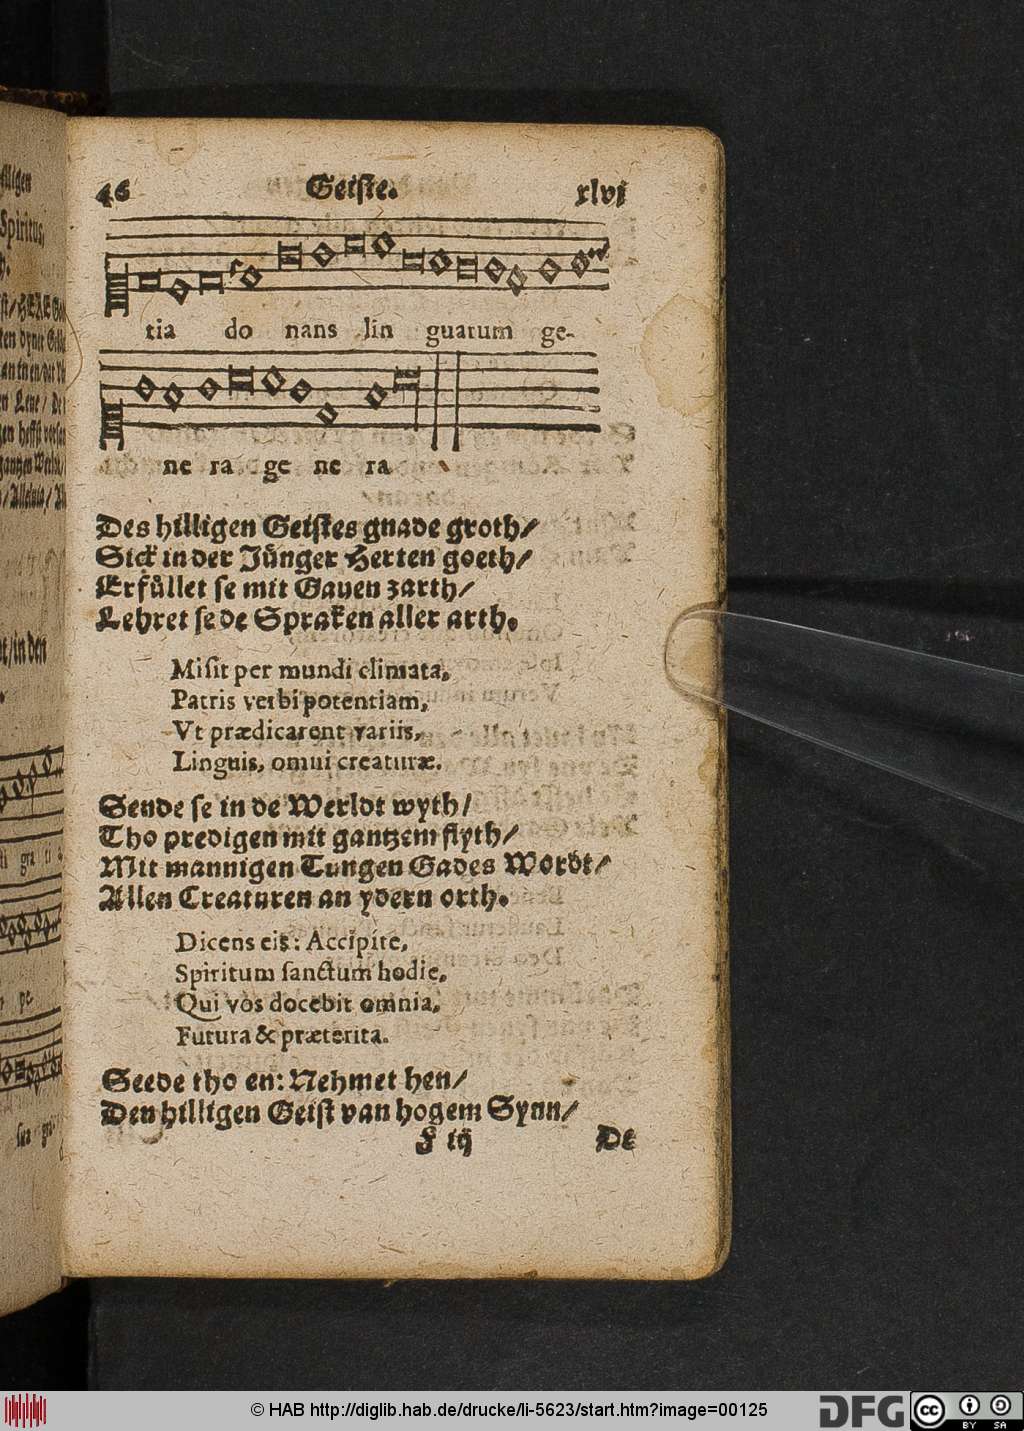 46 Geiste. xlvj
tia do nans lin guarum ge-
ne ra ge ne ra
Des hilligen Geistes gnade groth/
Sick in der Jünger Herten goeth/
Erfüllet se mit Gauen zarth/
Lehret se de Spraken aller arth.
Misit per mundi climata,
Patris verbi potentiam,
Vt prædicarent variis,
Linguis, omni creaturæ.
Sende se in de Werldt wyth/
Tho predigen mit gantzem flyth/
Mit mannigen Tungen Gades Wordt/
Allen Creaturen an ydern orth.
Dicens eis: Accipite,
Spiritum sanctum hodie,
Qui vos docebit omnia,
Futura & præterita.
Seede tho en: Nehmet hen/
Den hilligen Geist van hogem Synn/
F iij De
© HAB http://diglib.hab.de/drucke/li-5623/start.htm?image=00125
DFG
cc BY SA